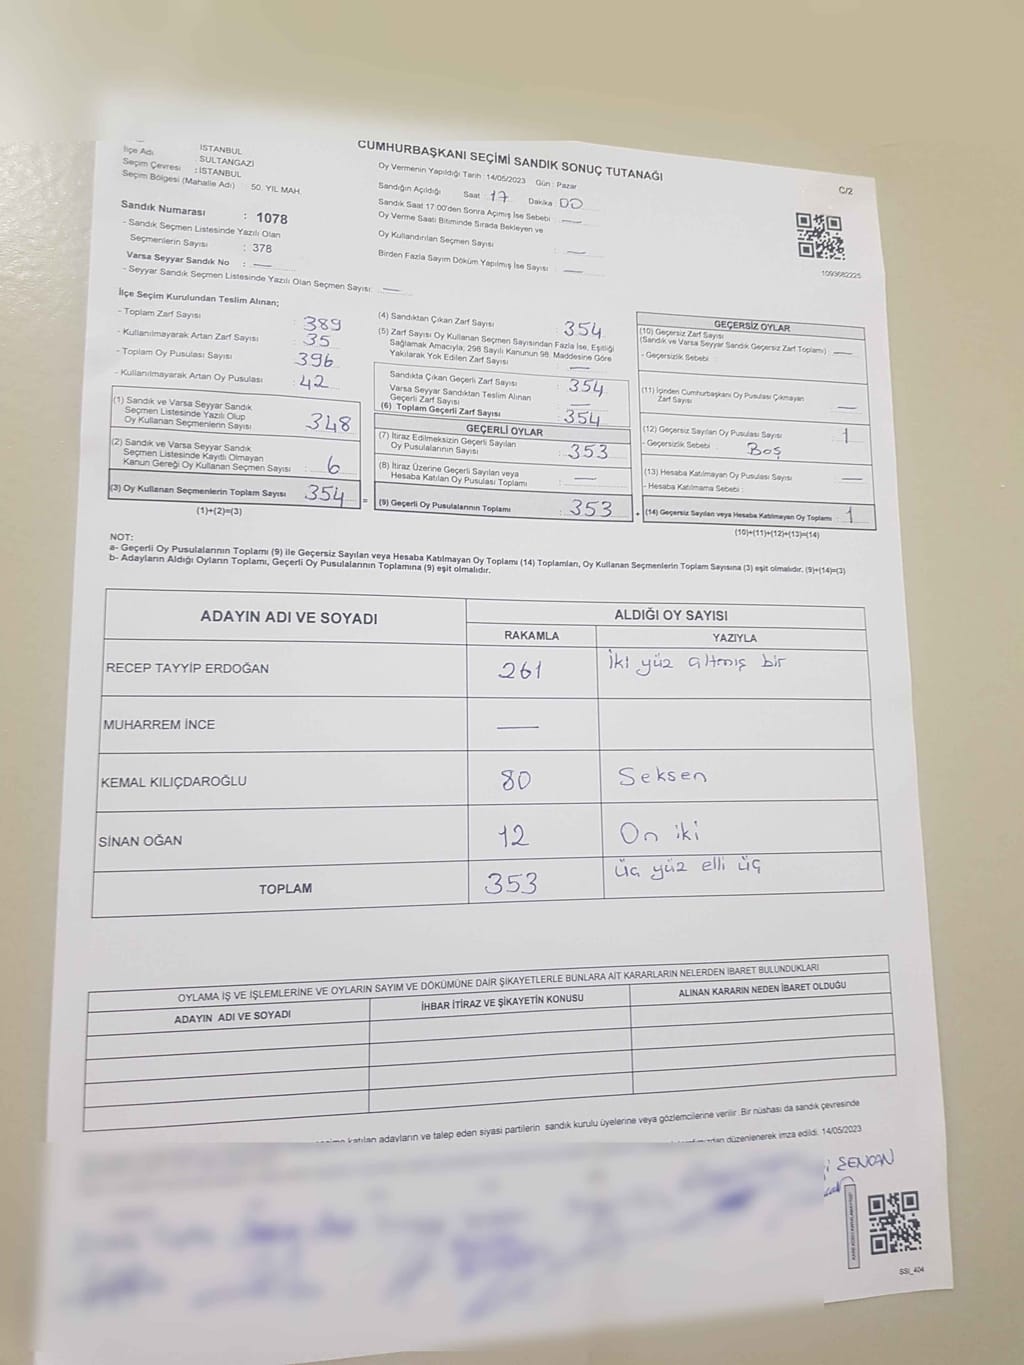 CUMHURBAŞKANI SEÇİMİ SANDIK SONUÇ TUTANAĞI
C/2
İlçe Adı
Seçim Çevresi
Seçim Bölgesi (Mahalle Adı)
İSTANBUL
: SULTANGAZİ
: İSTANBUL
: 50. YIL MAH.
Oy Vermenin Yapıldığı Tarih : 14/05/2023 Gün : Pazar
Sandığın Açıldığı Saat : 17 Dakika : 00
Sandık Saat 17:00'den Sonra Açılmış İse Sebebi : —
Oy Verme Saati Bitiminde Sırada Bekleyen ve
Oy Kullandırılan Seçmen Sayısı : —
Birden Fazla Sayım Döküm Yapılmış İse Sayısı : —
1093682225
Sandık Numarası : 1078
- Sandık Seçmen Listesinde Yazılı Olan
Seçmenlerin Sayısı : 378
Varsa Seyyar Sandık No : —
- Seyyar Sandık Seçmen Listesinde Yazılı Olan Seçmen Sayısı: —
İlçe Seçim Kurulundan Teslim Alınan;
- Toplam Zarf Sayısı : 389
- Kullanılmayarak Artan Zarf Sayısı : 35
- Toplam Oy Pusulası Sayısı : 396
- Kullanılmayarak Artan Oy Pusulası : 42
(1) Sandık ve Varsa Seyyar Sandık
Seçmen Listesinde Yazılı Olup
Oy Kullanan Seçmenlerin Sayısı : 348
(2) Sandık ve Varsa Seyyar Sandık
Seçmen Listesinde Kayıtlı Olmayan
Kanun Gereği Oy Kullanan Seçmen Sayısı : 6
(3) Oy Kullanan Seçmenlerin Toplam Sayısı : 354 =
(1)+(2)=(3)
(4) Sandıktan Çıkan Zarf Sayısı : 354
(5) Zarf Sayısı Oy Kullanan Seçmen Sayısından Fazla İse, Eşitliği
Sağlamak Amacıyla; 298 Sayılı Kanunun 98. Maddesine Göre
Yakılarak Yok Edilen Zarf Sayısı : —
Sandıkta Çıkan Geçerli Zarf Sayısı : 354
Varsa Seyyar Sandıktan Teslim Alınan
Geçerli Zarf Sayısı : —
(6) Toplam Geçerli Zarf Sayısı : 354
GEÇERLİ OYLAR
(7) İtiraz Edilmeksizin Geçerli Sayılan
Oy Pusulalarının Sayısı : 353
(8) İtiraz Üzerine Geçerli Sayılan veya
Hesaba Katılan Oy Pusulası Toplamı : —
(9) Geçerli Oy Pusulalarının Toplamı : 353 +
GEÇERSİZ OYLAR
(10) Geçersiz Zarf Sayısı
(Sandık ve Varsa Seyyar Sandık Geçersiz Zarf Toplamı) : —
- Geçersizlik Sebebi :
(11) İçinden Cumhurbaşkanı Oy Pusulası Çıkmayan
Zarf Sayısı : —
(12) Geçersiz Sayılan Oy Pusulası Sayısı : 1
- Geçersizlik Sebebi : Boş
(13) Hesaba Katılmayan Oy Pusulası Sayısı : —
- Hesaba Katılmama Sebebi :
(14) Geçersiz Sayılan veya Hesaba Katılmayan Oy Toplamı : 1
(10)+(11)+(12)+(13)=(14)
NOT:
a- Geçerli Oy Pusulalarının Toplamı (9) ile Geçersiz Sayılan veya Hesaba Katılmayan Oy Toplamı (14) Toplamları, Oy Kullanan Seçmenlerin Toplam Sayısına (3) eşit olmalıdır. (9)+(14)=(3)
b- Adayların Aldığı Oyların Toplamı, Geçerli Oy Pusulalarının Toplamına (9) eşit olmalıdır.
ADAYIN ADI VE SOYADI
ALDIĞI OY SAYISI
RAKAMLA YAZIYLA
RECEP TAYYİP ERDOĞAN 261 İki yüz altmış bir
MUHARREM İNCE —
KEMAL KILIÇDAROĞLU 80 Seksen
SİNAN OĞAN 12 On iki
TOPLAM 353 Üç yüz elli üç
OYLAMA İŞ VE İŞLEMLERİNE VE OYLARIN SAYIM VE DÖKÜMÜNE DAİR ŞİKAYETLERLE BUNLARA AİT KARARLARIN NELERDEN İBARET BULUNDUKLARI
ADAYIN ADI VE SOYADI İHBAR İTİRAZ VE ŞİKAYETİN KONUSU ALINAN KARARIN NEDEN İBARET OLDUĞU
katılan adayların ve talep eden siyasi partilerin sandık kurulu üyelerine veya gözlemcilerine verilir. Bir nüshası da sandık çevresinde
düzenlenerek imza edildi. 14/05/2023
ŞENCAN
SSI_404